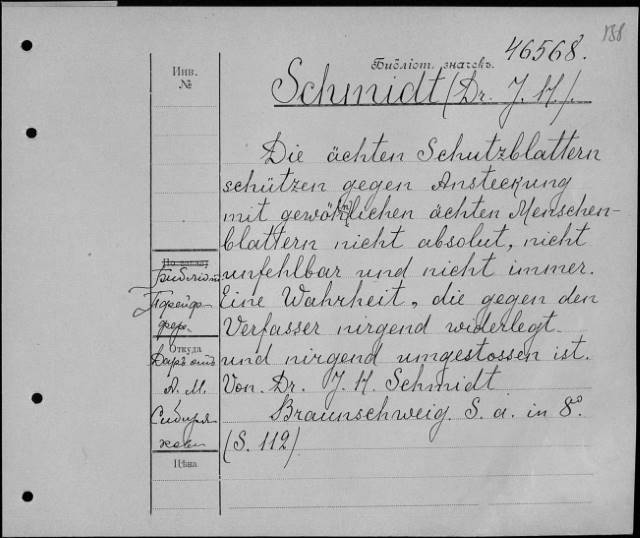 188
46568.
Библіот. значекъ.
Инв.
№
Schmidt (Dr. J. H.).
Die ächten Schutzblattern
schützen gegen Ansteckung
mit gewöhnlichen ächten Menschen-
blattern nicht absolut, nicht
unfehlbar und nicht immer.
Eine Wahrheit, die gegen den
Verfasser nirgend widerlegt
und nirgend umgestossen ist.
Von Dr. J. H. Schmidt
Braunschweig. S. a. in 8º.
(S. 112)
Библіот.
Пфейф-
фера
Откуда
Даръ отъ
А. М.
Сибиря-
кова
Цѣна